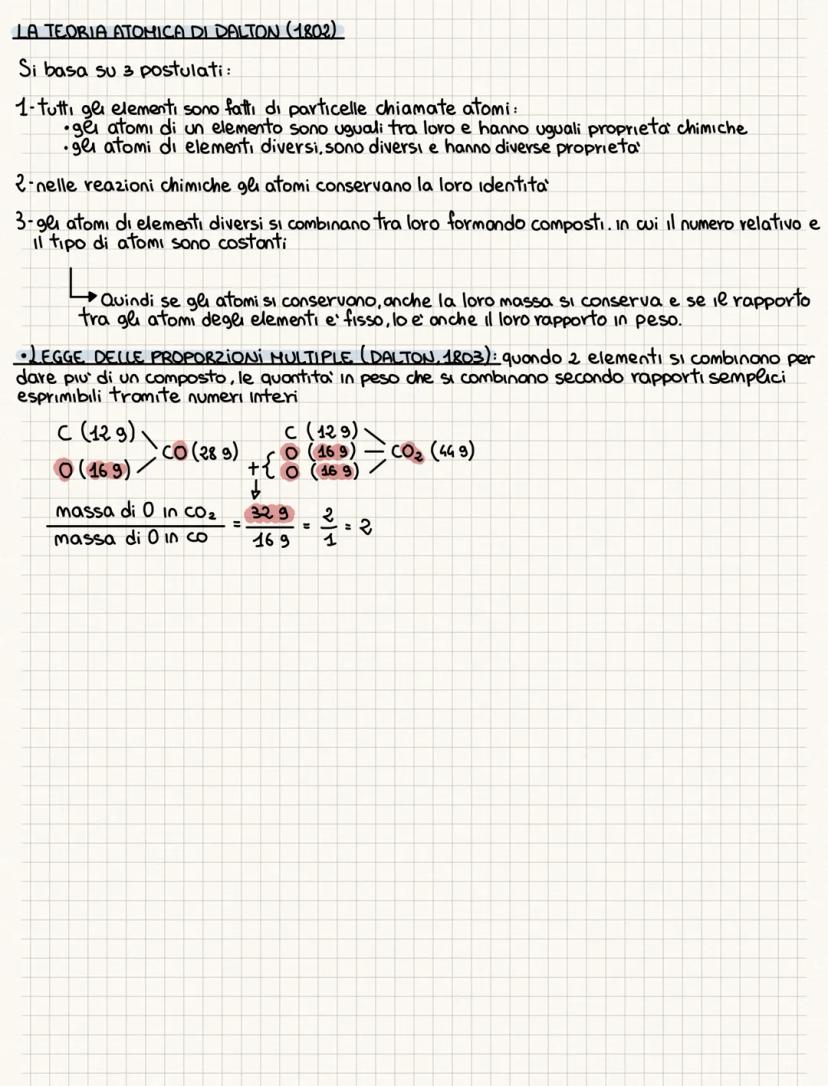 LA TEORIA ATOMICA DI DALTON (1802)
Si basa su 3 postulati:
1-tutti gli elementi sono fatti di particelle chiamate atomi:
•gli atomi di un elemento sono uguali tra loro e hanno uguali proprietà chimiche
•gli atomi di elementi diversi, sono diversi e hanno diverse proprietà
2-nelle reazioni chimiche gli atomi conservano la loro identità
3-gli atomi di elementi diversi si combinano tra loro formando composti. in cui il numero relativo e
il tipo di atomi sono costanti
Quindi se gli atomi si conservano, anche la loro massa si conserva e se il rapporto
tra gli atomi degli elementi e' fisso, lo e' anche il loro rapporto in peso.
•LEGGE DELLE PROPORZIONI MULTIPLE (DALTON, 1803): quando 2 elementi si combinano per
dare piu' di un composto, le quantita' in peso che si combinano secondo rapporti semplici
esprimibili tramite numeri interi
C (12 g) C (12 g)
CO (28 g) O (16 g) CO₂ (44 g)
O (16 g) +{ O (16 g)
massa di O in CO₂ / massa di O in CO = 32 g / 16 g = 2 / 1 = 2